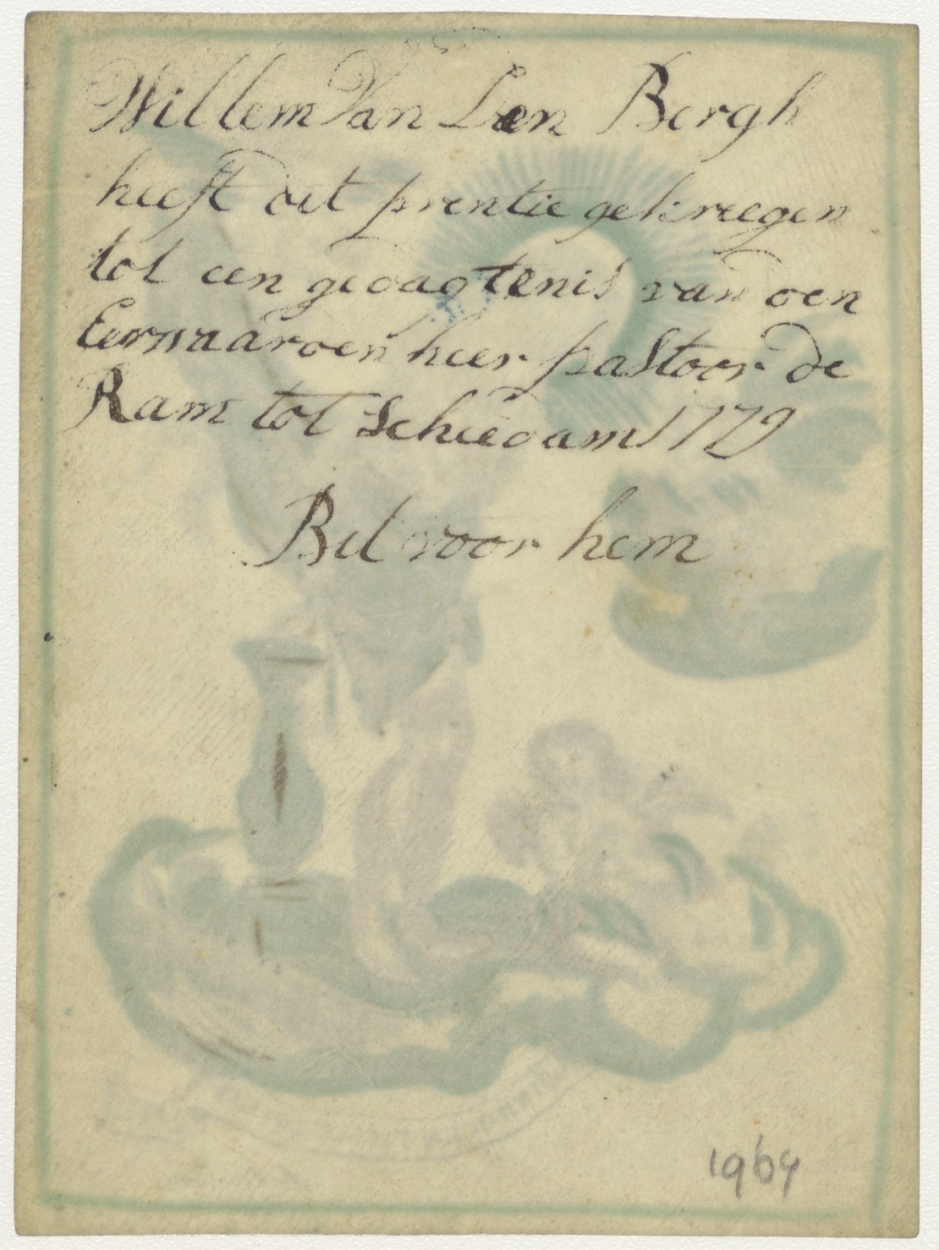 Willem Van Den Bergh
heeft dit prentie gekreegen
tot een gedagtenis van den
Eerwaarden heer pastoor de
Ram tot Schiedam 1779
Bid voor hem
1964